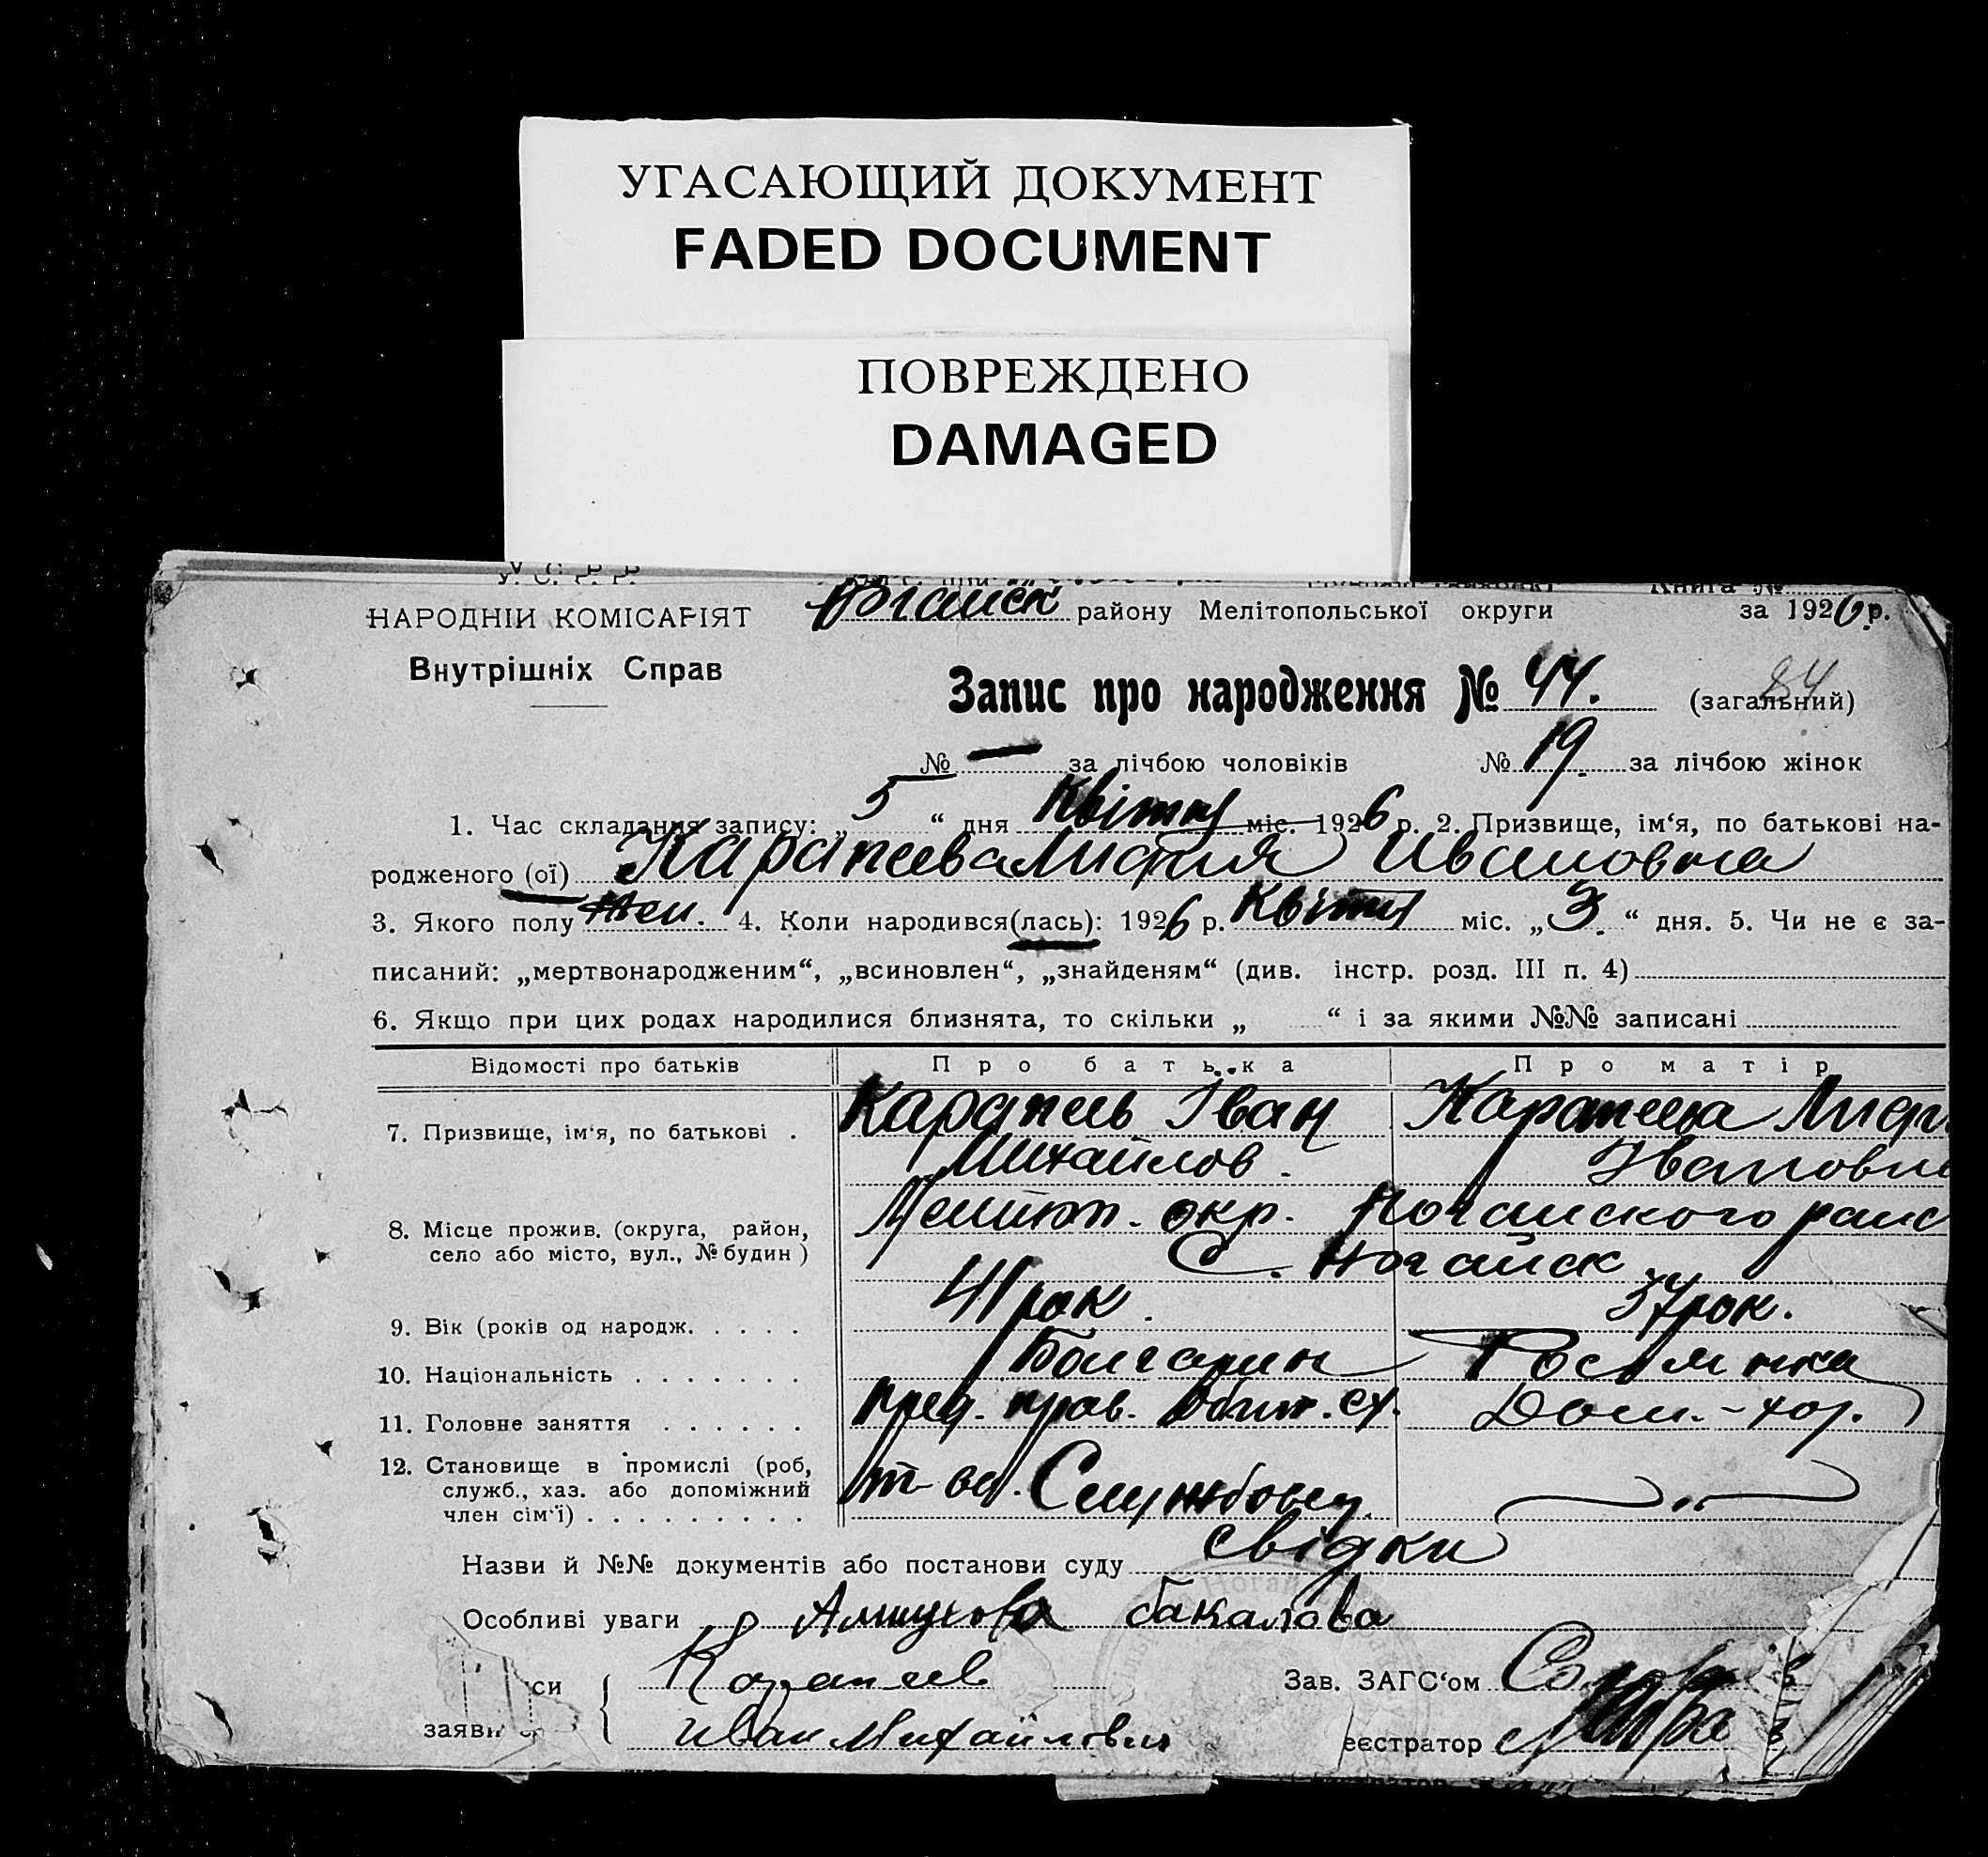 УГАСАЮЩИЙ ДОКУМЕНТ
FADED DOCUMENT
ПОВРЕЖДЕНО
DAMAGED
У. С. Р. Р.
Книга №
НАРОДНІЙ КОМІСАРІЯТ
Ногайск району Мелітопольської округи за 1926 р.
Внутрішніх Справ
Запис про народження № 44. (загальний) 84
№ — за лічбою чоловіків № 19. за лічбою жінок
1. Час складання запису: „ 5 “ дня Квітня міс. 1926 р. 2. Призвище, ім‘я, по батькові на-
родженого (ої) Карапеева Лидия Ивановна
3. Якого полу жен. 4. Коли народився(лась): 1926 р. Квітня міс. „ 3. “ дня. 5. Чи не є за-
писаний: „мертвонародженим“, „всиновлен“, „знайденям“ (див. інстр. розд. III п. 4)
6. Якщо при цих родах народилися близнята, то скільки „ “ і за якими №№ записані
Відомості про батьків Про батька Про матір
7. Призвище, ім‘я, по батькові . Іван
Михайлов. Івановна
8. Місце прожив. (округа, район, Меліт. окр. Ногайского
село або місто, вул., № будин ) С. Ногайск
9. Вік (років од народж. . . . . 41 рок. 37 рок.
10. Національність . . . . . . . Болгарин
11. Головне заняття . . . . . . Пред. прав. Дом.-хоз.
12. Становище в промислі (роб,
служб., хаз. або допоміжний т-ва. Службовец
член сім‘ї) . . . . . . . . .
Назви й №№ документів або постанови суду свідки
Особливі уваги бакалова
си Карапеев Зав. ЗАГС‘ом
заяви Иван Михайлович еєстратор